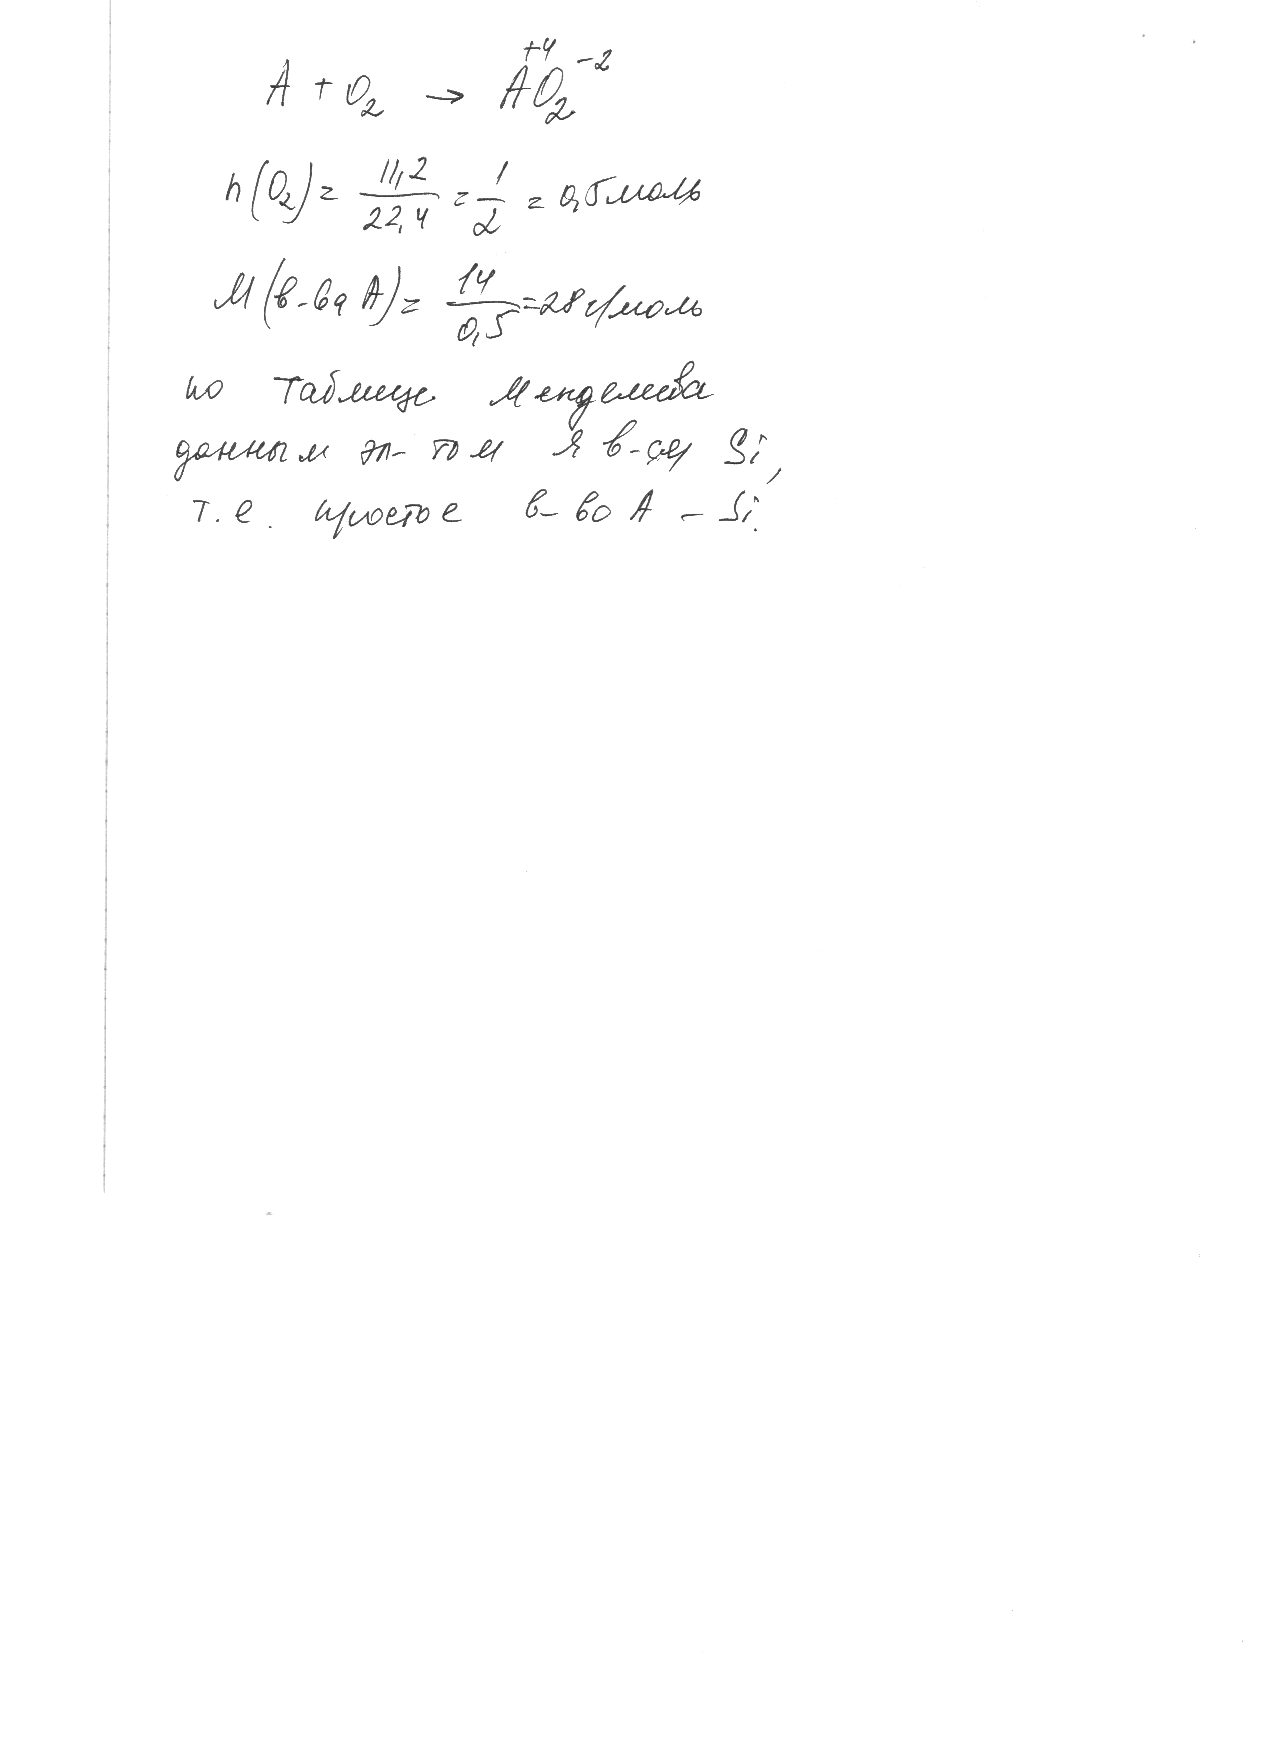 A + O₂ → A⁺⁴O₂⁻²
n(O₂) = 11,2/22,4 = 1/2 = 0,5 моль
M(в-ва A) = 14/0,5 = 28 г/моль
по таблице Менделеева
данным эл-том я в-ся Si,
т.е. простое в-во A – Si.